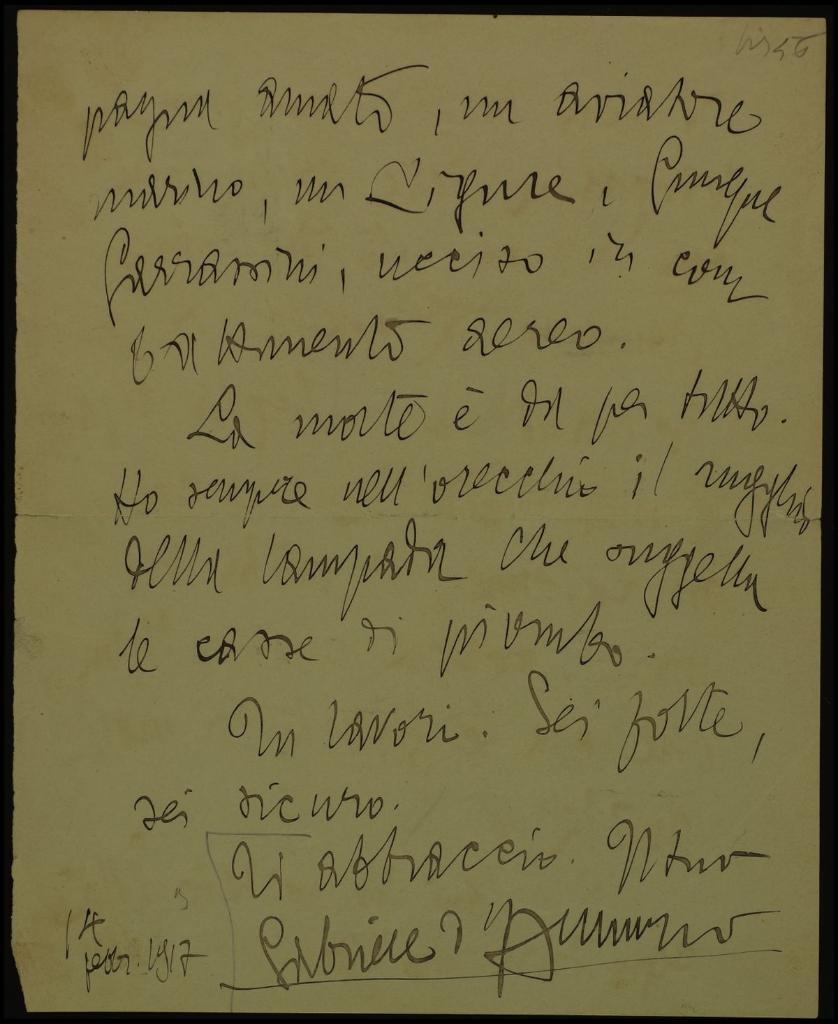 pagno amato, un aviatore
marino, un Ligure, Giuseppe
Garrassini, ucciso in com
battimento aereo.
La morte è da per tutto.
Ho sempre nell'orecchio il rugghio
della lampada che suggella
le casse di piombo.
Tu lavori. Sei forte,
sei sicuro.
Ti abbraccio. Il tuo
Gabriele d'Annunzio
14
febbr. 1917